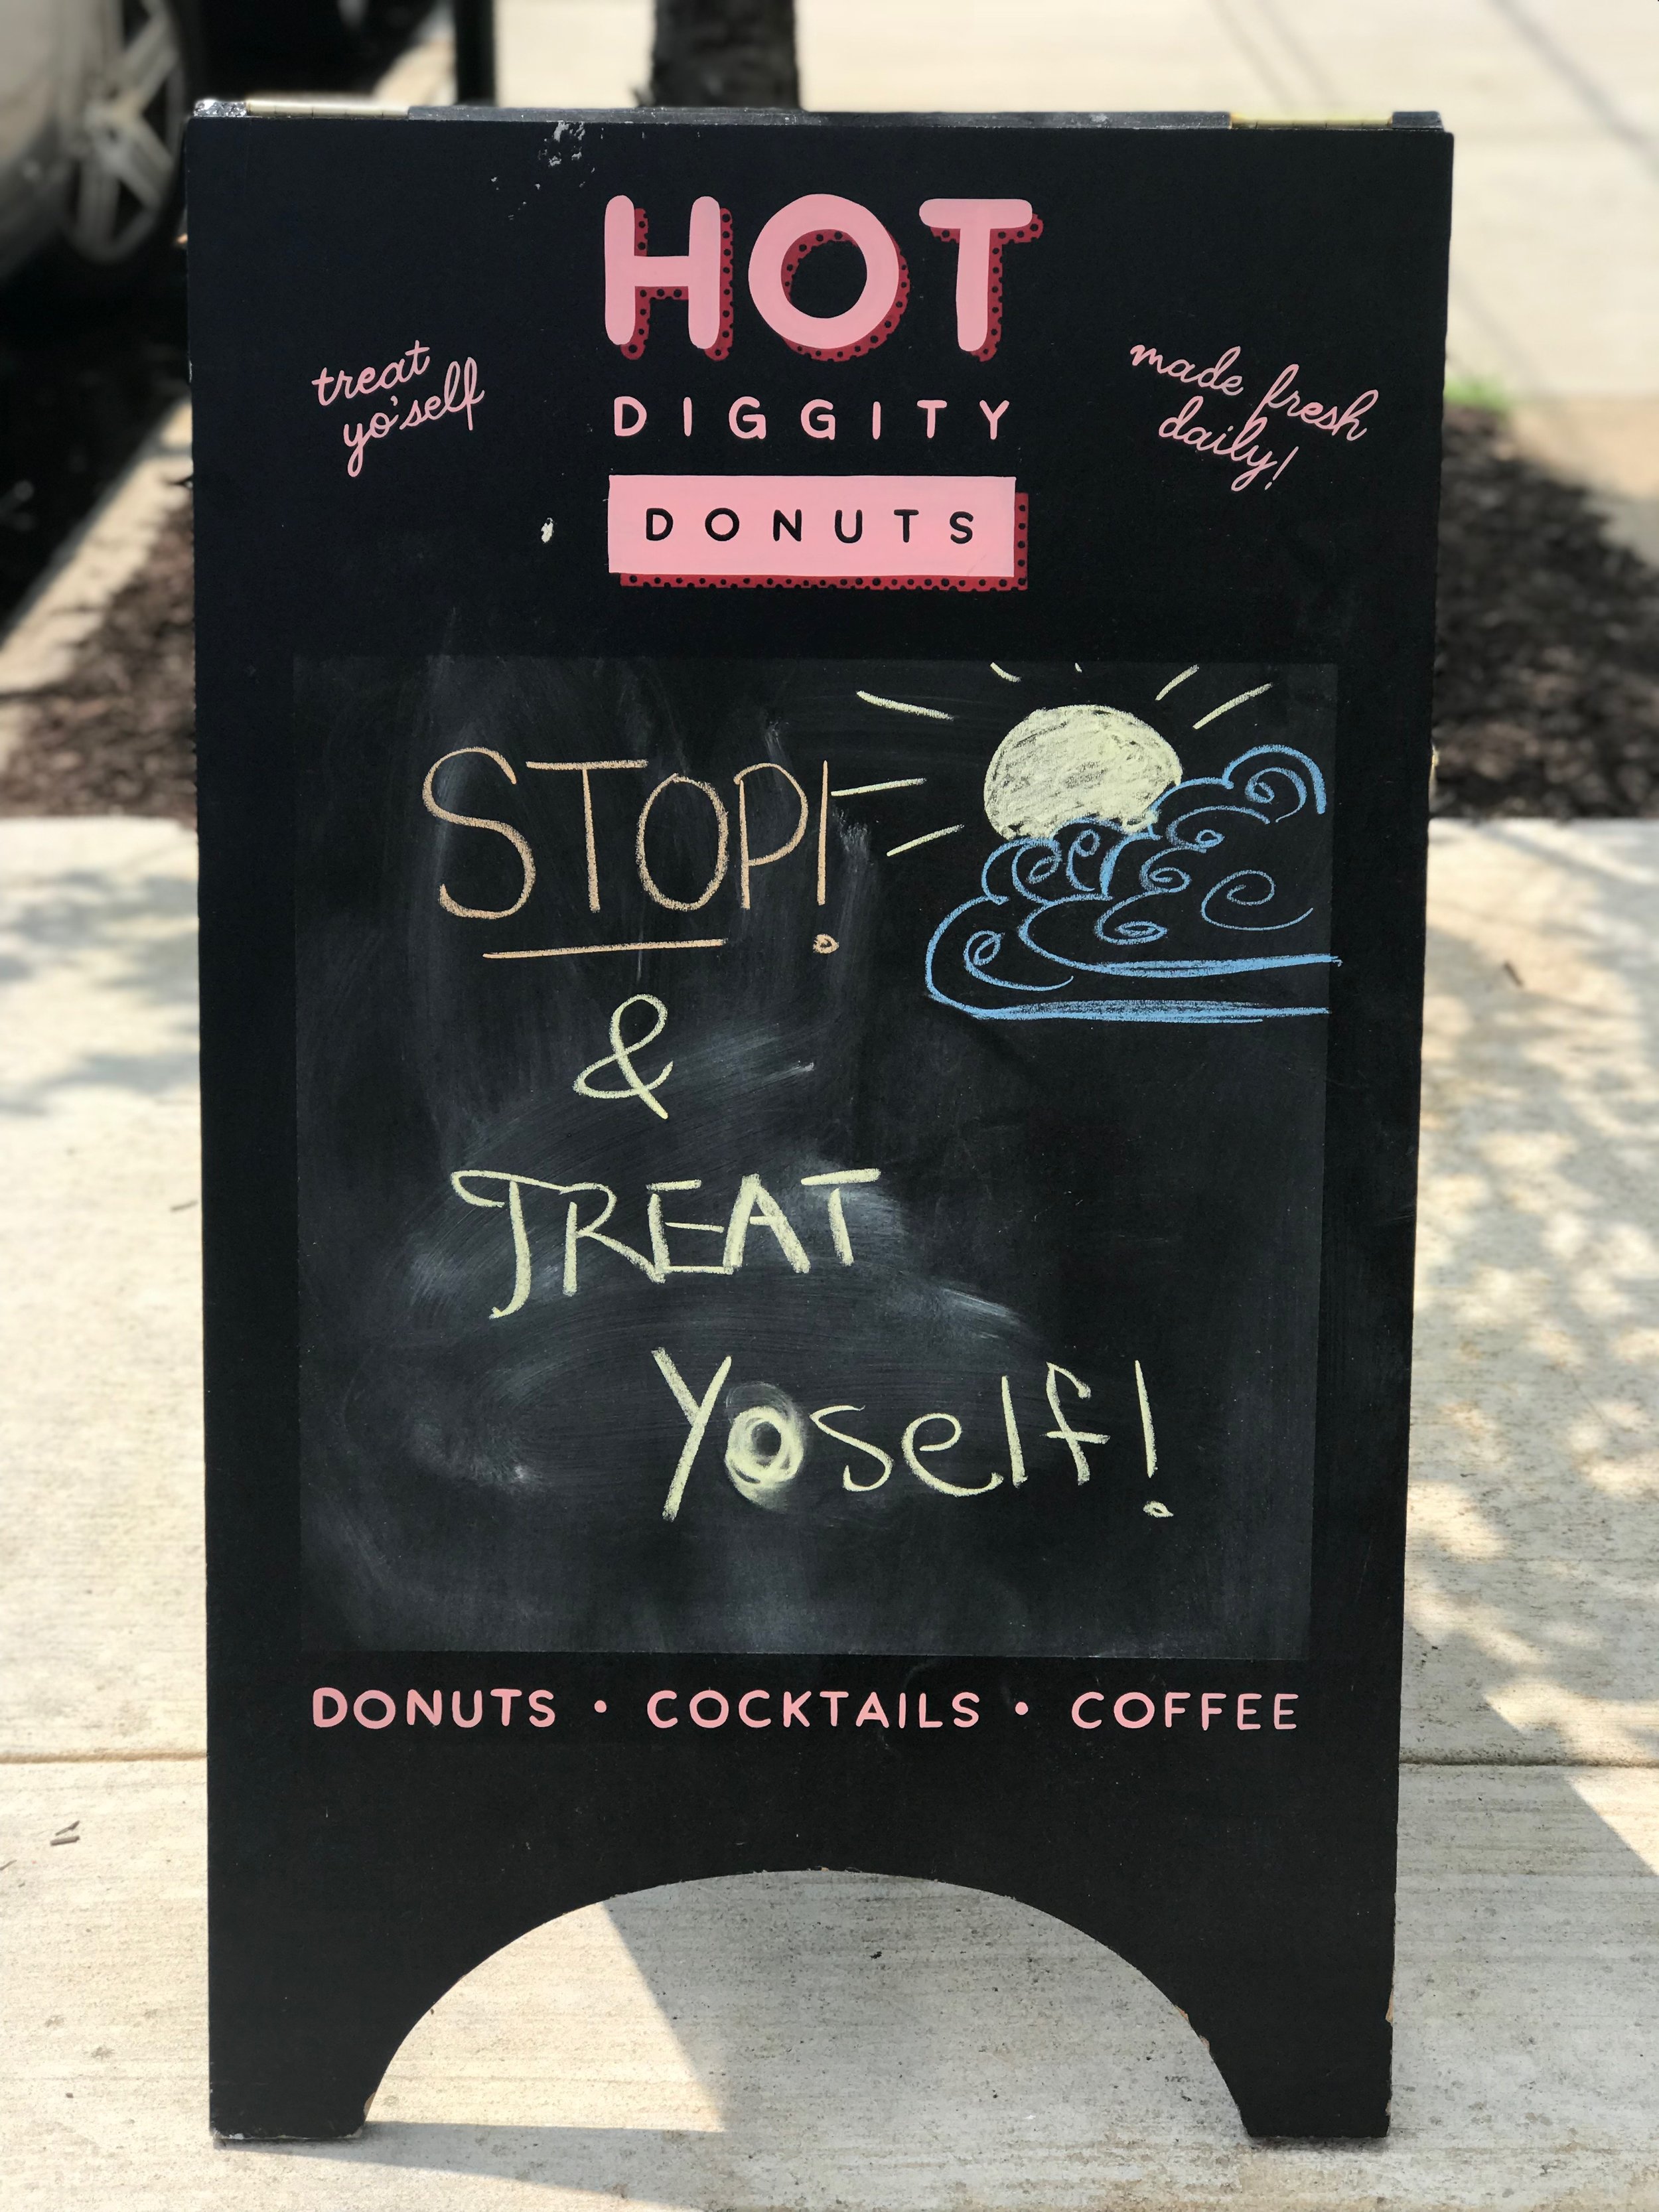 HOT
DIGGITY
DONUTS
treat
yo'self
made fresh
daily!
STOP!
&
TREAT
Yoself!
DONUTS • COCKTAILS • COFFEE